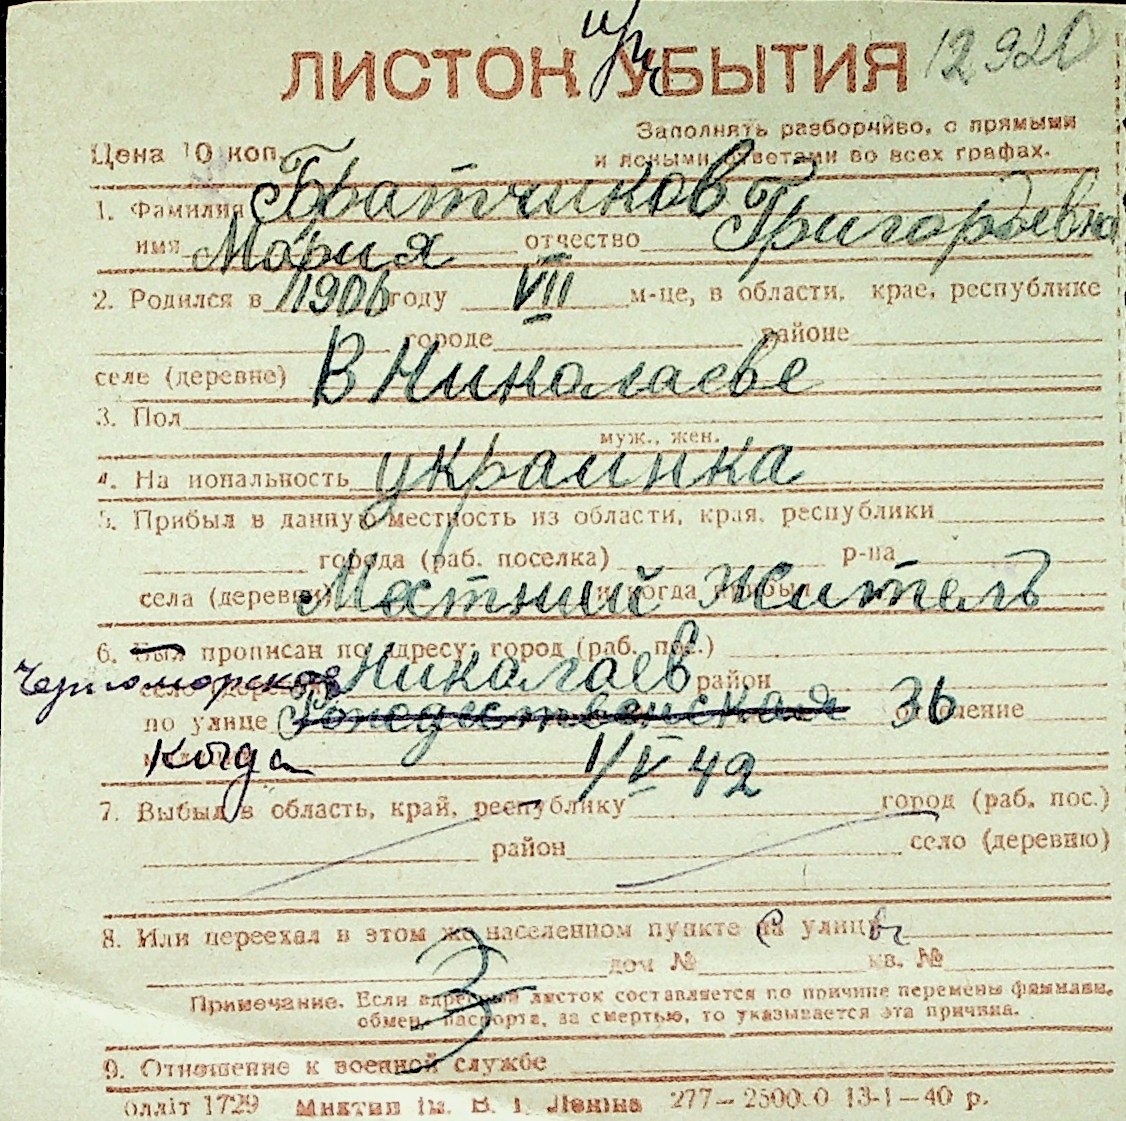 ЛИСТОК УБЫТИЯ 12920
Заполнять разборчиво, с прямыми
Цена 10 коп.
и ясными ответами во всех графах.
1. Фамилия Братчиков
имя Мария отчество Григорьевна
2. Родился в 1906 году VII м-це, в области, крае, республике
городе районе
селе (деревне) В Николаеве
3. Пол
муж., жен.
4. Национальность украинка
5. Прибыл в данную местность из области, края, республики
города (раб. поселка) р-на
села (деревни) и когда прибыл Местний житель
6. Был прописан по адресу: город (раб. пос.)
Черноморская Николаев район
по улице Рождественская 36 отделение
Когда 1/V 42
7. Выбыл в область, край, республику город (раб. пос.)
район село (деревню)
8. Или переехал в этом же населенном пункте с улицы
дом № кв. №
3
Примечание. Если адресный листок составляется по причине перемены фамилии,
обмена паспорта, за смертью, то указывается эта причина.
9. Отношение к военной службе
олліт 1729 ім. В. І. Леніна 277—25000 13-I—40 р.